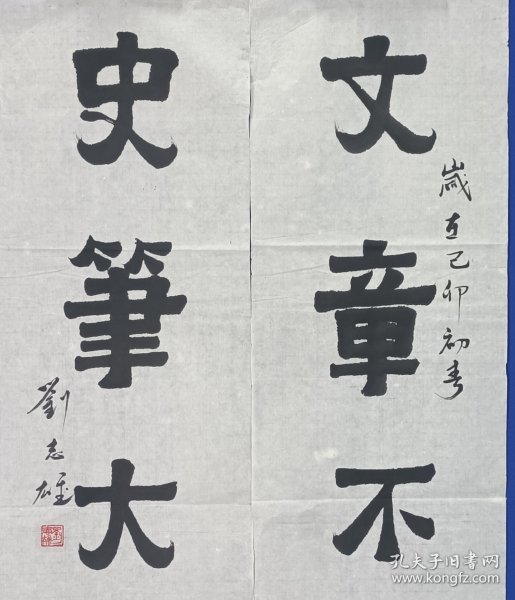 文章不
歲在己卯初春
史筆大
劉志雄
孔夫子旧书网
www.kongfz.com